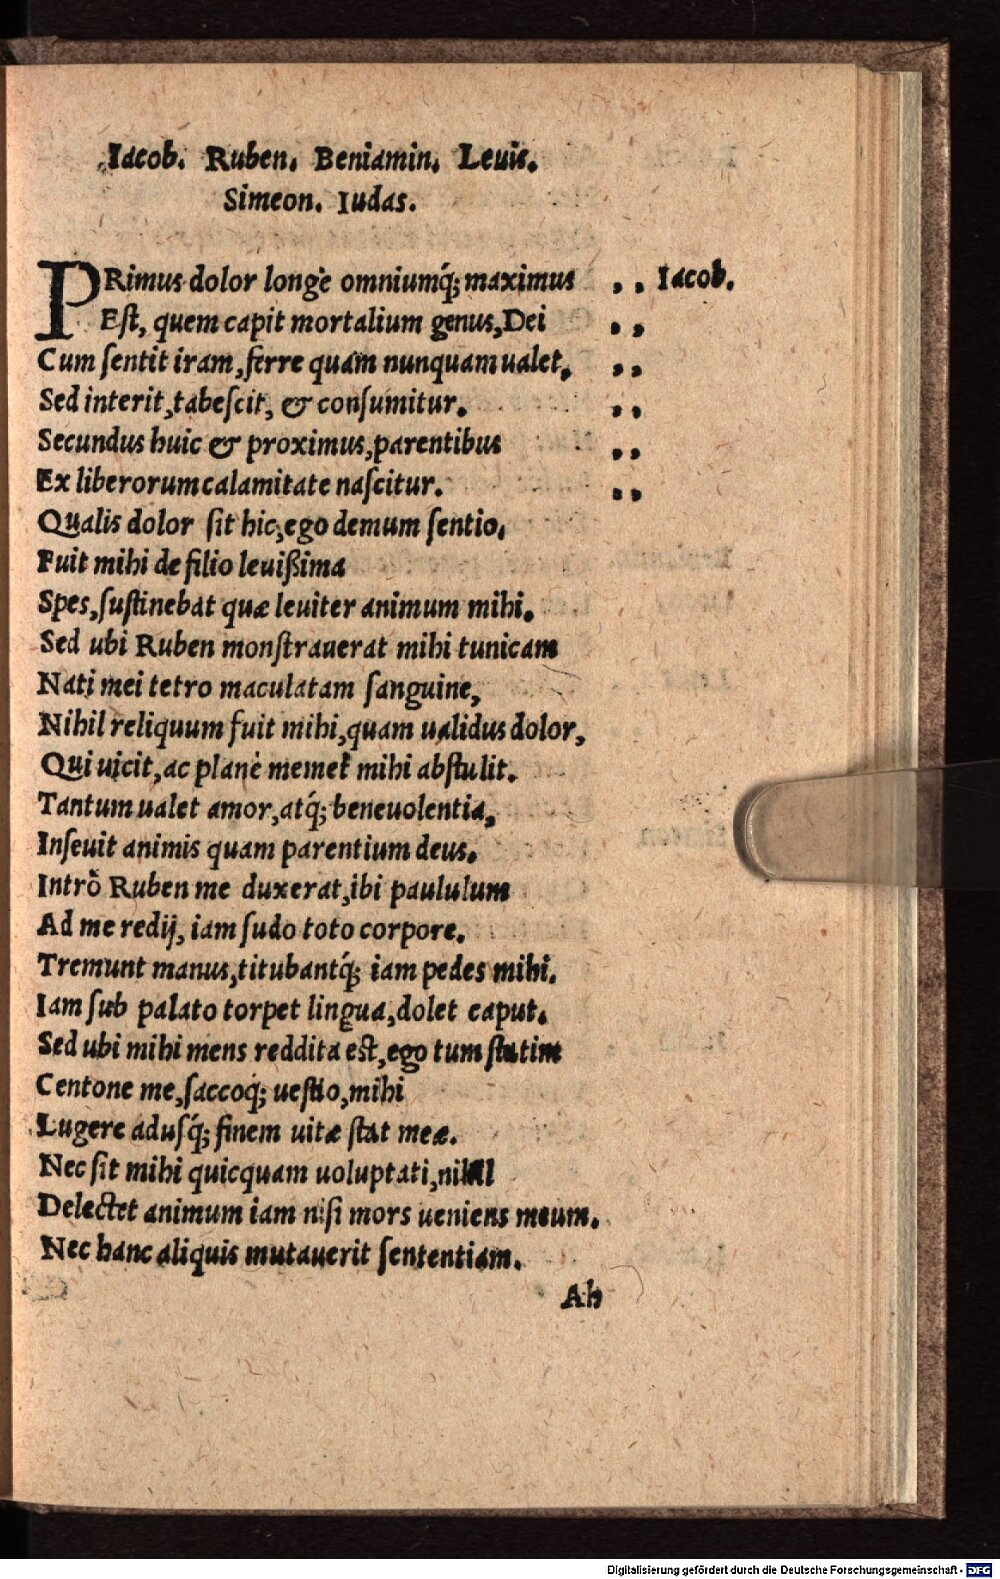 Iacob. Ruben. Beniamin. Leuis.
Simeon. Iudas.
PRimus dolor longè omniumq́; maximus ,, Iacob.
Est, quem capit mortalium genus, Dei ,,
Cum sentit iram, ferre quam nunquam ualet. ,,
Sed interit, tabescit, & consumitur. ,,
Secundus huic & proximus, parentibus ,,
Ex liberorum calamitate nascitur. ,,
Qualis dolor sit hic, ego demum sentio.
Fuit mihi de filio leuißima
Spes, sustinebat quæ leuiter animum mihi.
Sed ubi Ruben monstrauerat mihi tunicam
Nati mei tetro maculatam sanguine,
Nihil reliquum fuit mihi, quam ualidus dolor,
Qui uicit, ac planè memet mihi abstulit.
Tantum ualet amor, atq́; beneuolentia,
Inseuit animis quam parentium deus.
Intrò Ruben me duxerat, ibi paululum
Ad me redij, iam sudo toto corpore.
Tremunt manus, titubantq́; iam pedes mihi.
Iam sub palato torpet lingua, dolet caput.
Sed ubi mihi mens reddita est, ego tum statim
Centone me, saccoq́; uestio, mihi
Lugere adusq́; finem uitæ stat meæ.
Nec sit mihi quicquam uoluptati, nihil
Delectet animum iam nisi mors ueniens meum.
Nec hanc aliquis mutauerit sententiam.
Ah
Digitalisierung gefördert durch die Deutsche Forschungsgemeinschaft - DFG